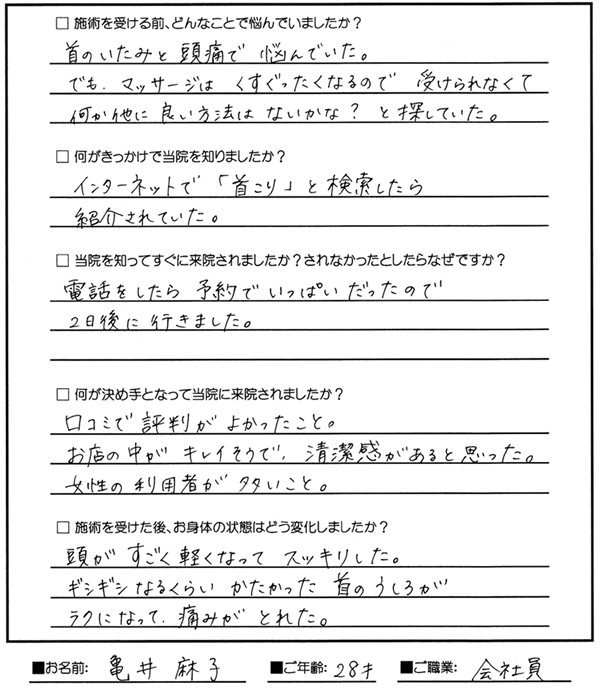 □ 施術を受ける前、どんなことで悩んでいましたか？
首のいたみと頭痛で 悩んでいた。
でも、マッサージは くすぐったくなるので 受けられなくて
何か他に 良い方法は ないかな？ と探していた。
□ 何がきっかけで当院を知りましたか？
インターネットで 「首こり」と検索したら
紹介されていた。
□ 当院を知ってすぐに来院されましたか？されなかったとしたらなぜですか？
電話をしたら 予約で いっぱいだったので
2日後に 行きました。
□ 何が決め手となって当院に来院されましたか？
口コミで 評判が よかったこと。
お店の中が キレイそうで、清潔感があると思った。
女性の利用者が 多いこと。
□ 施術を受けた後、お身体の状態はどう変化しましたか？
頭が すごく軽くなって スッキリした。
ギシギシなるくらい かたかった 首のうしろが
ラクになって、痛みが とれた。
■お名前: 亀井 麻子 ■ご年齢: 28才 ■ご職業: 会社員